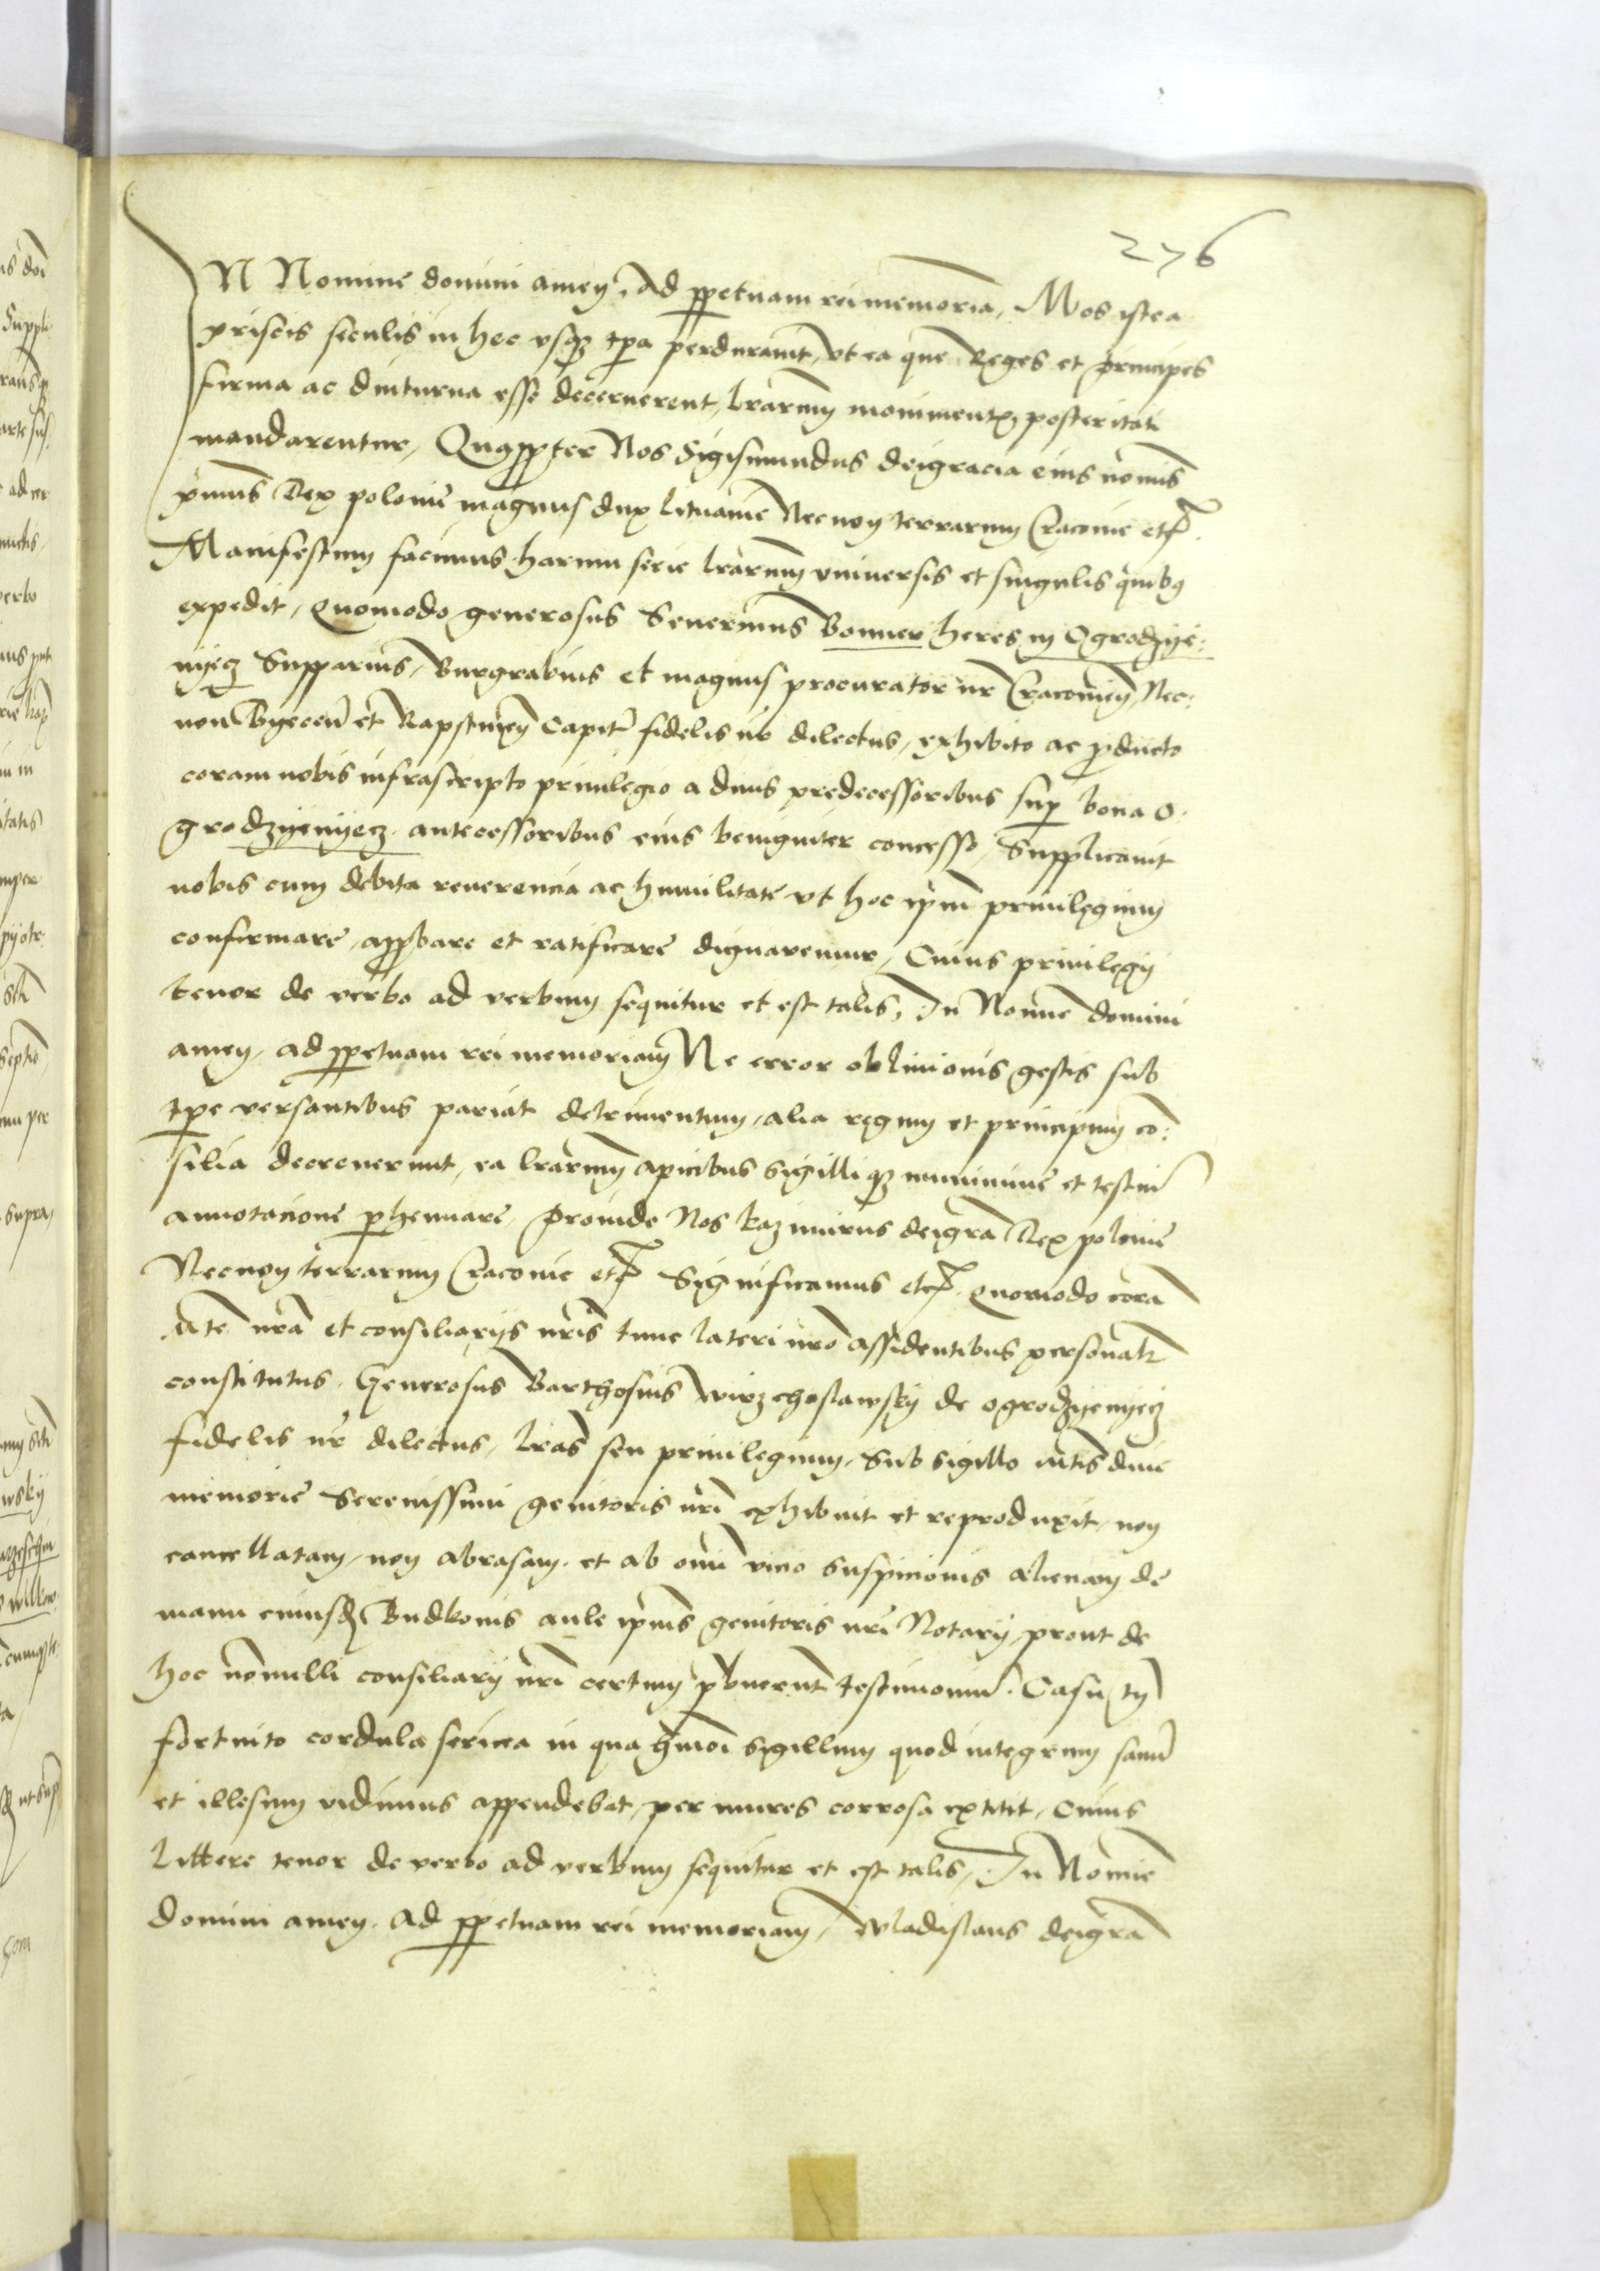 276
IN Nomine domini amen, Ad ppetuam rei memoria, Mos iste a
priscis seculis in hec vsq tpa perdurauit, vt ea que Reges et principes
firma ac diuturna esse decernerent, lrarum monimentis posteritati
mandarentur, Quappter Nos Sigismundus dei gracia eius nomis
primus Rex polonie magnus dux lituanie Necnon terrarum Cracouie etc
Manifestum facimus harum serie lrarum vniuersis et singulis quibus
expedit, quomodo generosus Seuerinus Bonner heres in Ogrodzye:
nyecz Supparius, Burgrabius et magnus procurator nr Cracouien Nec:
non Byecen et Rapstinen Capit fidelis nb dilectus, exhibito ac producto
coram nobis infrascripto priuilegio a diuis predecessoribus sup bona O
grodzyenyecz antecessoribus eius benigniter concesso, Supplicauit
nobis cum debita reuerencia ac humilitate vt hoc ipm priuilegium
confirmare, approbare et ratificare dignaremur, Cuius priuilegij
tenor de verbo ad verbum sequitur et est talis, In Nomine domini
amen, ad ppetuam rei memoriam Ne error obliuionis gestis sub
tpe versantibus pariat detrimentum, alia regum et principum co:
silia decreuerunt, ea lrarum apicibus sigilliq munimine et testium
annotacione perhennare, proinde Nos kazimirus dei gra Rex polonie
Necnon terrarum Cracouie etc Significamus etc. quomodo cora
Mte nra et consiliarijs nris tunc lateri nro assidentibus personalr
constitutus, Generosus Barthosius wirzchoslawsky de ogrodzyenyecz
fidelis nr dilectus, lras seu priuilegium, sub sigillo mtis diue
memorie Serenissimi genitoris nri exhibuit et reproduxit, non
cancellatam, non abrasam, et ab omi vicio suspicionis alienam de
manu cuiusd Budkonis aule ipius genitoris nri Notarij, prout de
hoc nonnulli consiliarij nri certum phbuerunt testimonium. Casu tn
fortuito cordula sericea in qua hmoi sigillum quod integrum sanu
et illesum vidimus appendebat, per mures corrosa extitit, Cuius
littere tenor de verbo ad verbum sequitur et est talis, In Nomine
domini amen. Ad ppetuam rei memoriam, Wladislaus dei gra